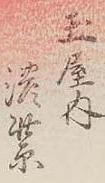 玉屋内
濃紫